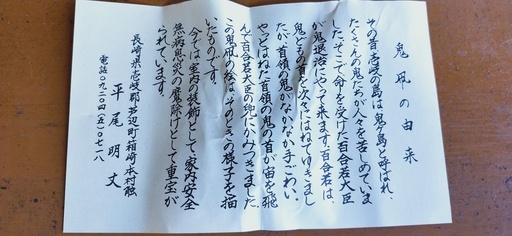 鬼凧の由来
その昔壱岐の島は鬼ヶ島と呼ばれ、
たくさんの鬼たちが人々を苦しめていま
した。そこで命を受けた百合若大臣
が鬼退治にやって来ます。百合若は、
鬼どもの首を次々にはねてゆきまし
たが、首領の鬼がなかなか手ごわい。
やっとはねた首領の鬼の首が宙を飛
んで百合若大臣の兜にかみつきました。
この鬼凧の絵は、そのときの様子を描
いたものです。
今では室内の装飾として、家内安全
無病息災の魔除けとして重宝が
られています。
長崎県壱岐郡芦辺町箱崎本村触
平尾明丈
電話〇九二〇四(五)〇七一八